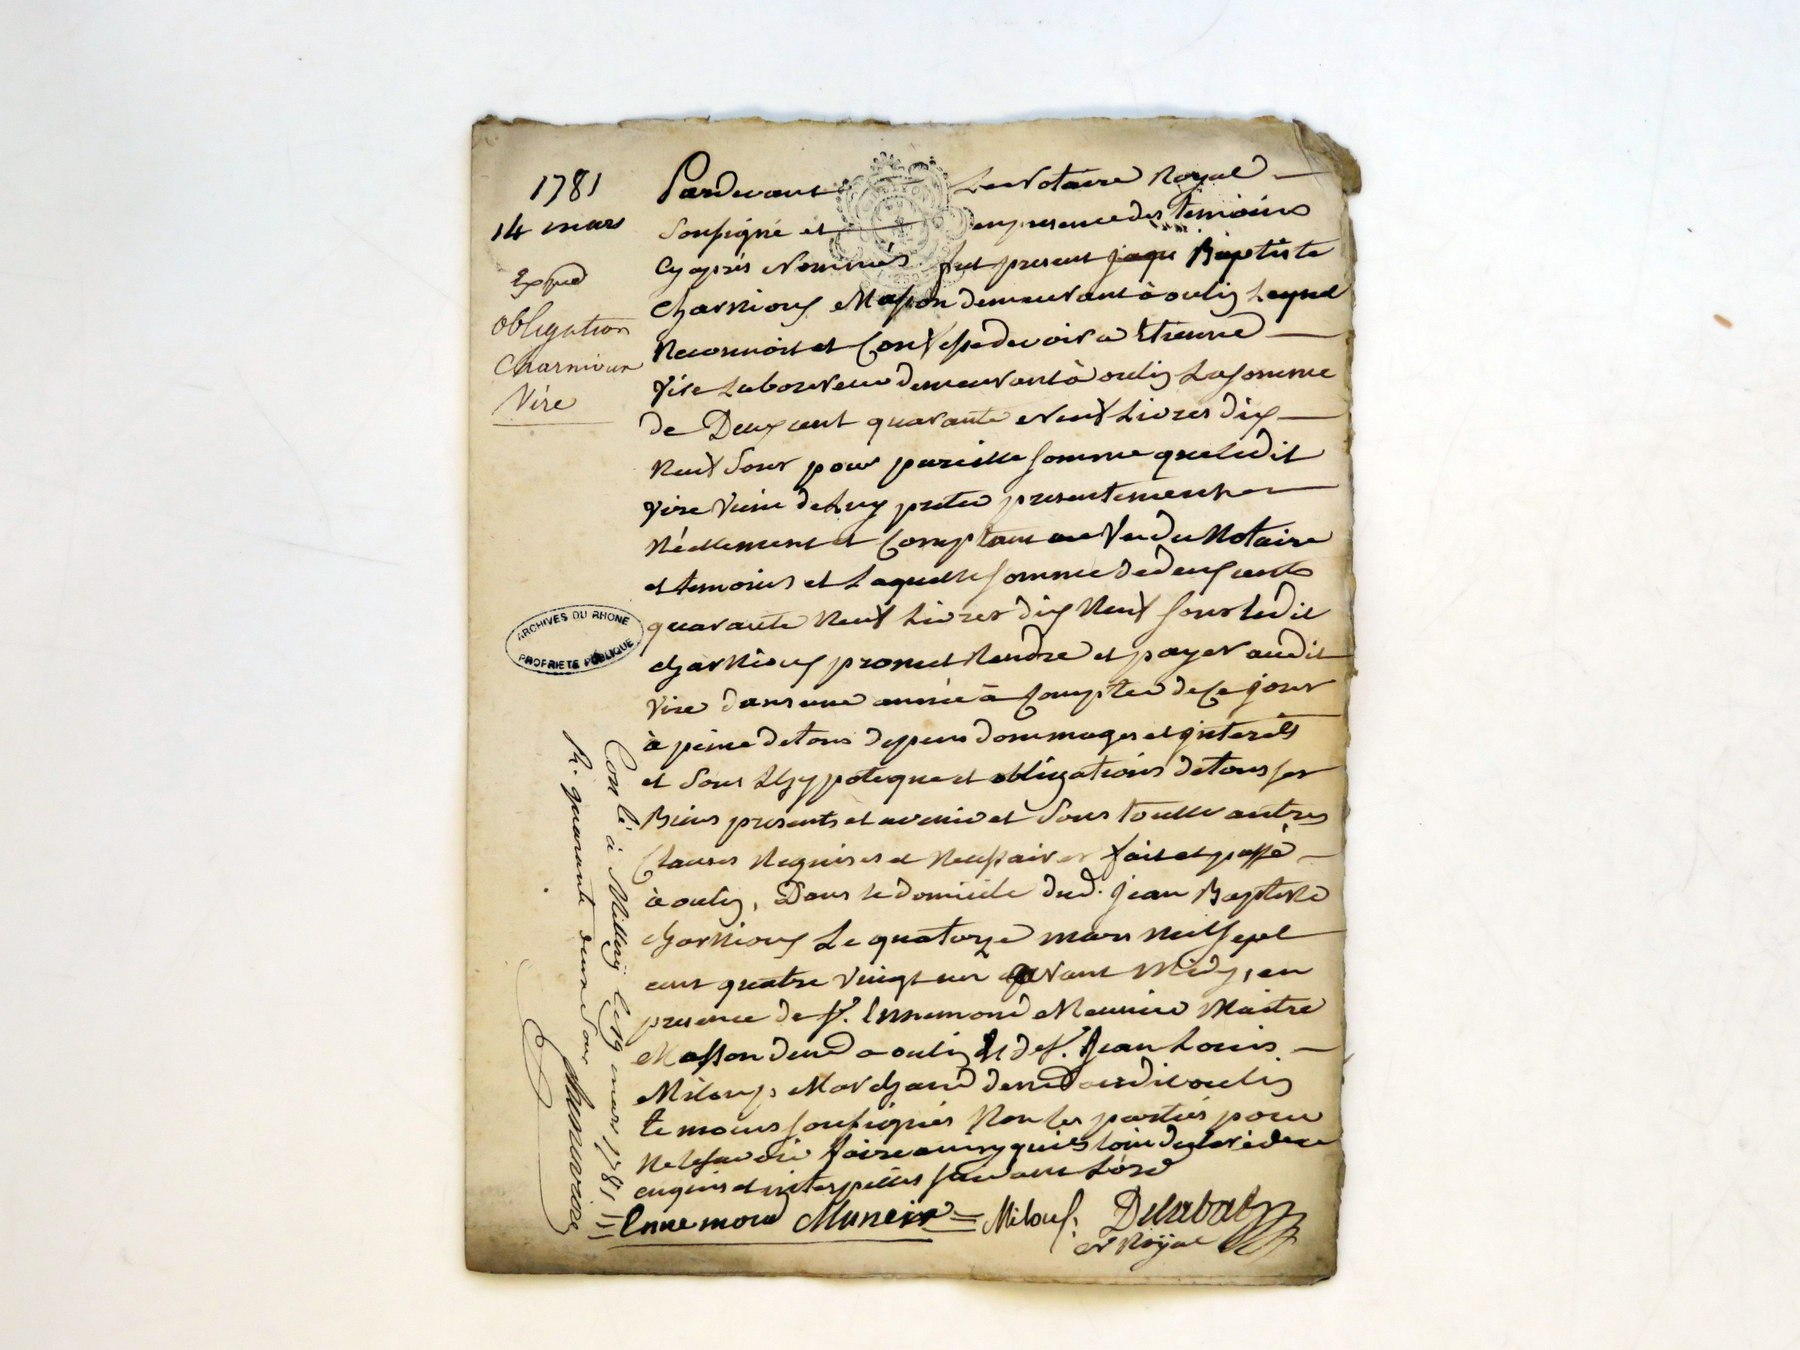 1781
14 mars
Exped
obligation
Charnioux
Vire
Pardevant Le Notaire Royal
Soussigné et en presence des temoins
Cy après Nommés fut present jaque Baptiste
Charnioux Masson demeurant à oulin Lequel
Reconnoit et Confesse devoir a Etienne
Vire Laboureur demeurant à oulin La somme
de Deux cent quarante Neuf Livres dix
Neuf Sous pour pareille somme que Ledit
Vire Vient de Luy preter presentement
Réellement et Comptant au Vu du Notaire
et temoins et Laquelle somme de deux cents
quarante Neuf Livres dix Neuf sous Ledit
Charnioux promet Rendre et payer audit
Vire dans une année à Compter de Ce jour
à peine de tous depens dommages et jnterets
et Sous Lhypoteque et obligations de tous ses
Biens presents et avenir et Sous toutte autres
Clauses Requises et Necessaires fait et passé
à oulin, Dans le domicile dud. jean Baptiste
Charnioux Le quatorze mars mil sept
cent quatre vingt un avant Midy, en
presence de sr. Ennemond Meunier Maitre
Masson demt a oulin Et de sr. Jean Louis
Milouss Marchand demt audit oulin
temoins soussignés Non les parties pour
Ne le savoir faire
enquis et interpellés suivant Lord
Ennemond Muneir Milous Delabat
Nre Royal
Conlé à Millery le 19 mars 1781
R. quarante deux sous
ARCHIVES DU RHONE
PROPRIETE PUBLIQUE